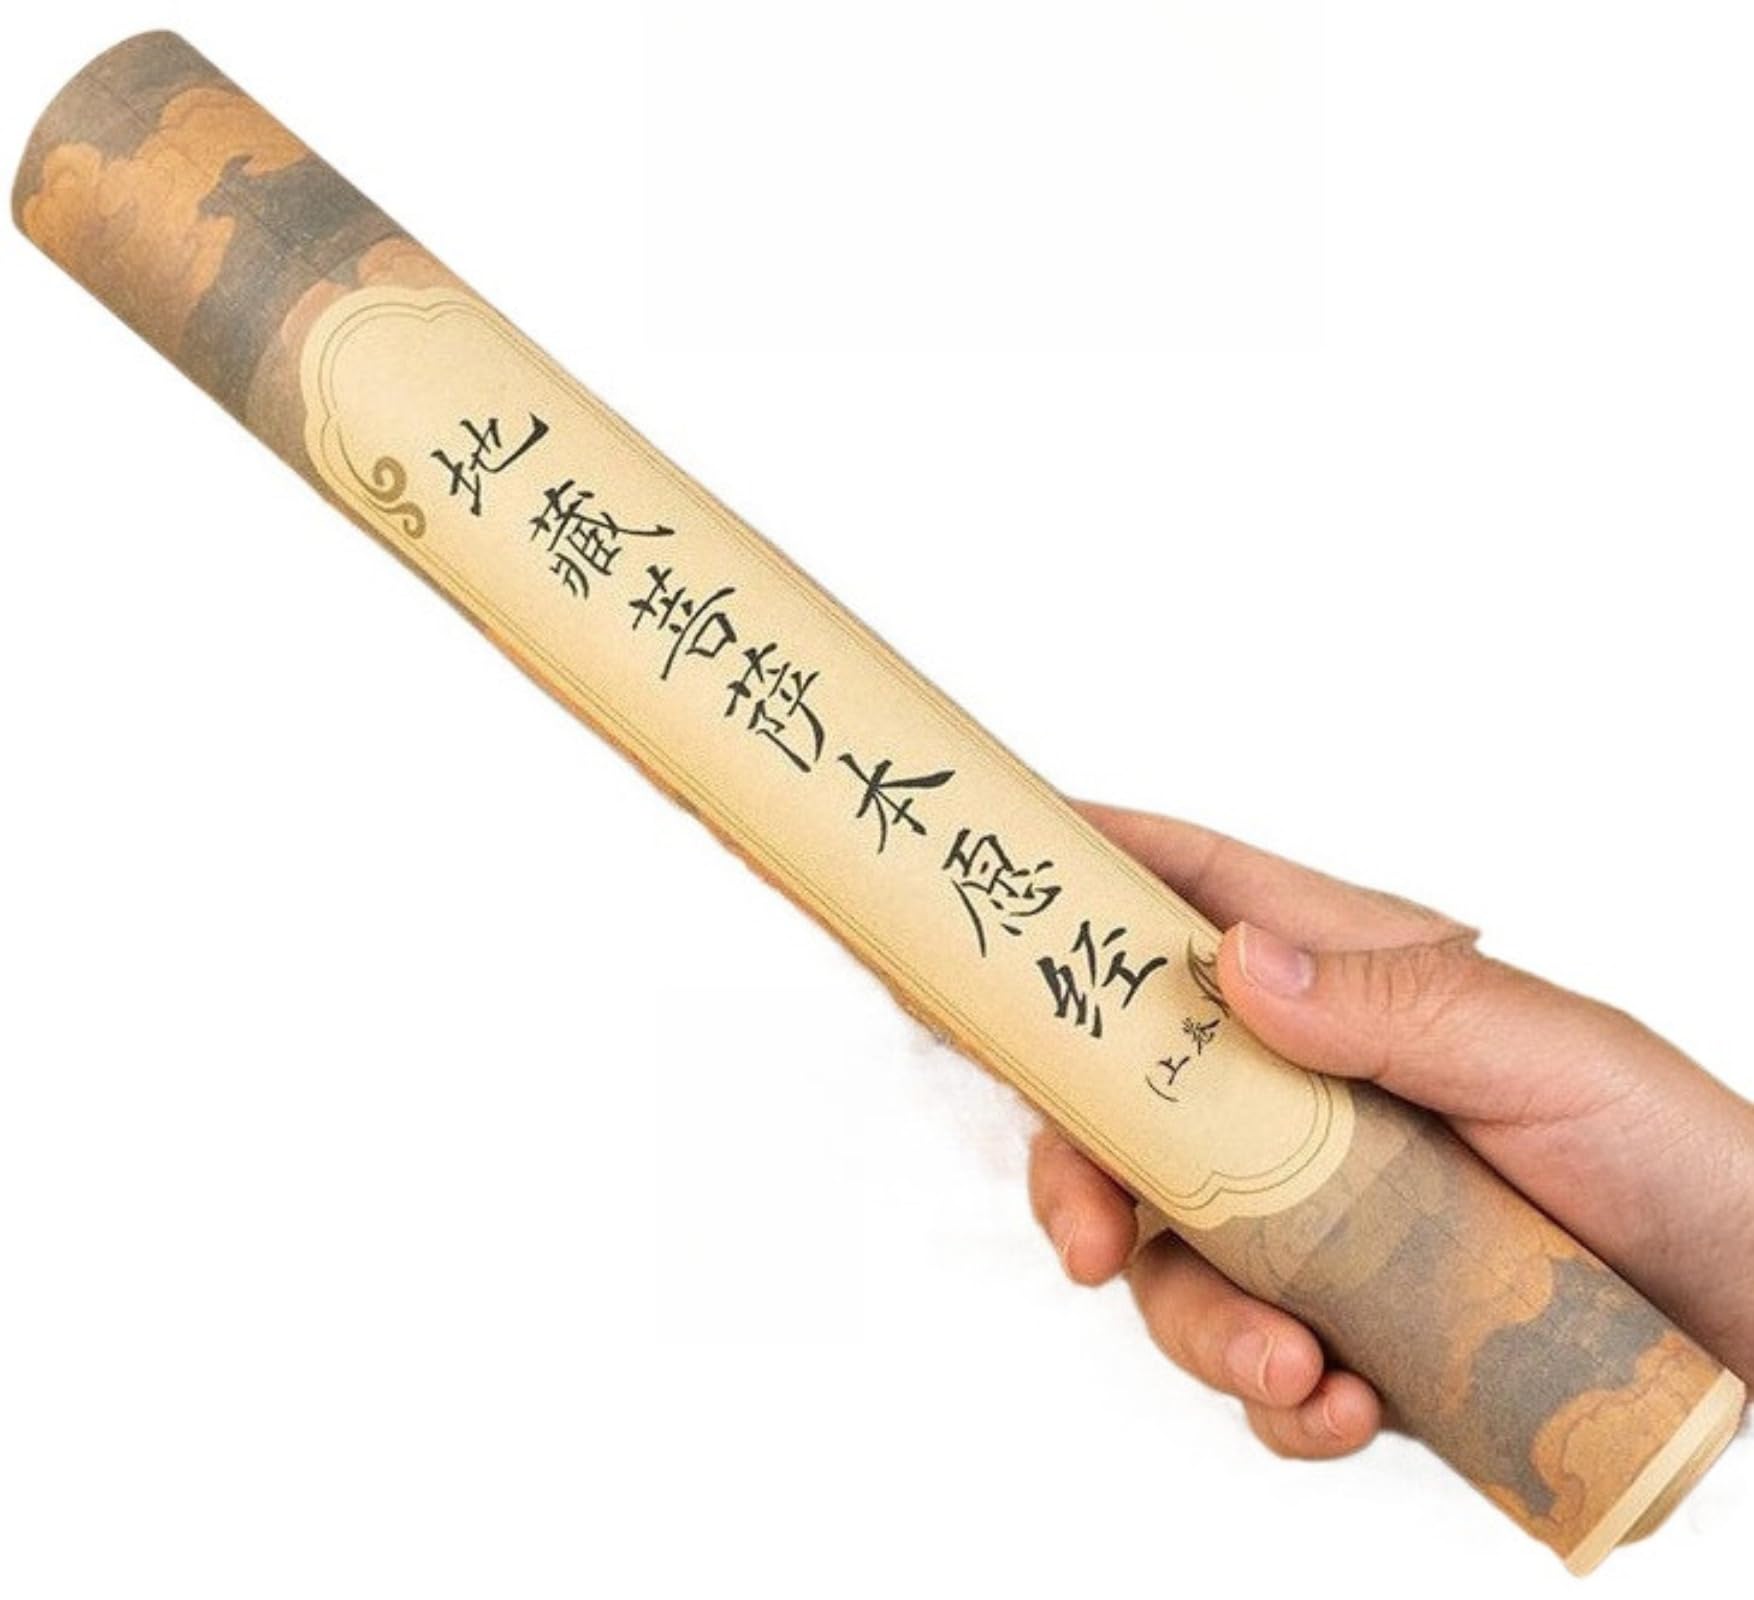 地藏菩萨本愿经
(上卷